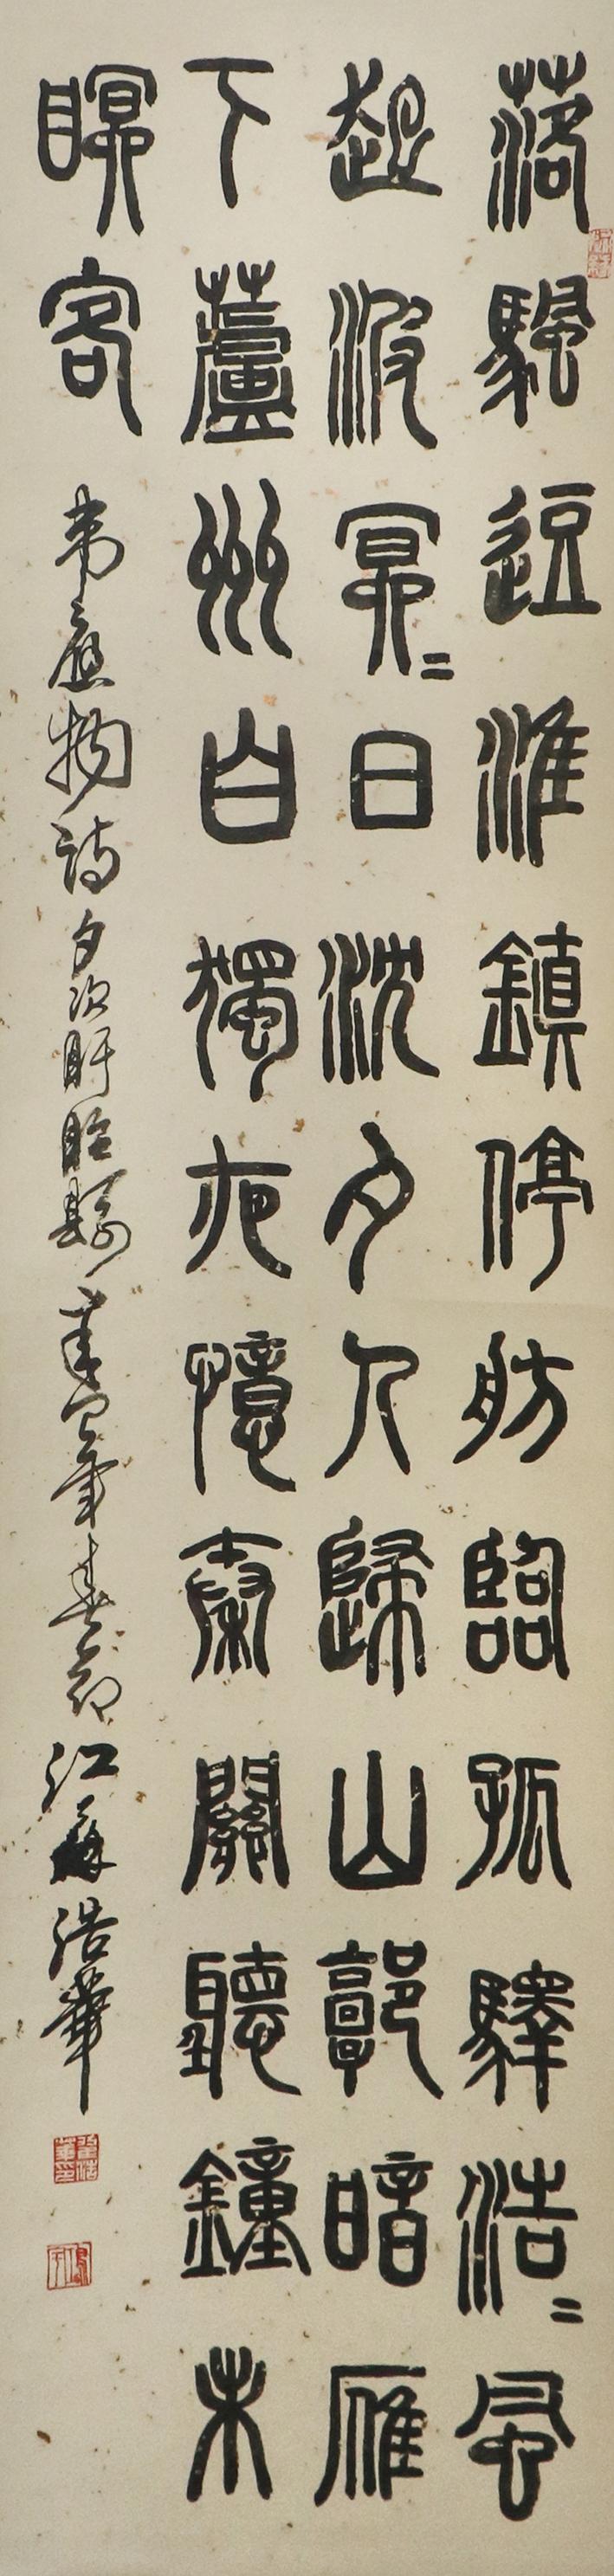 落颿逗淮鎮停舫臨孤驛浩〻風
起波冥〻日沈夕人歸山郭暗雁
下蘆州白獨夜憶秦關聽鐘未
瞑客 韋應物詩夕次盱眙縣 年春節 江蘇浩華